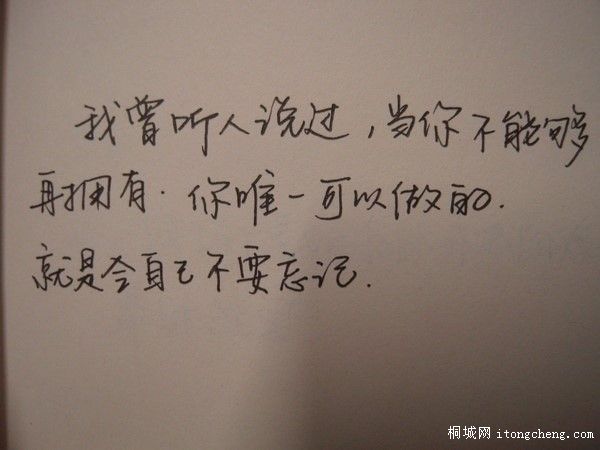 我曾听人说过,当你不能够
再拥有.你唯一可以做的.
就是令自己不要忘记.
桐城网 itongcheng.com